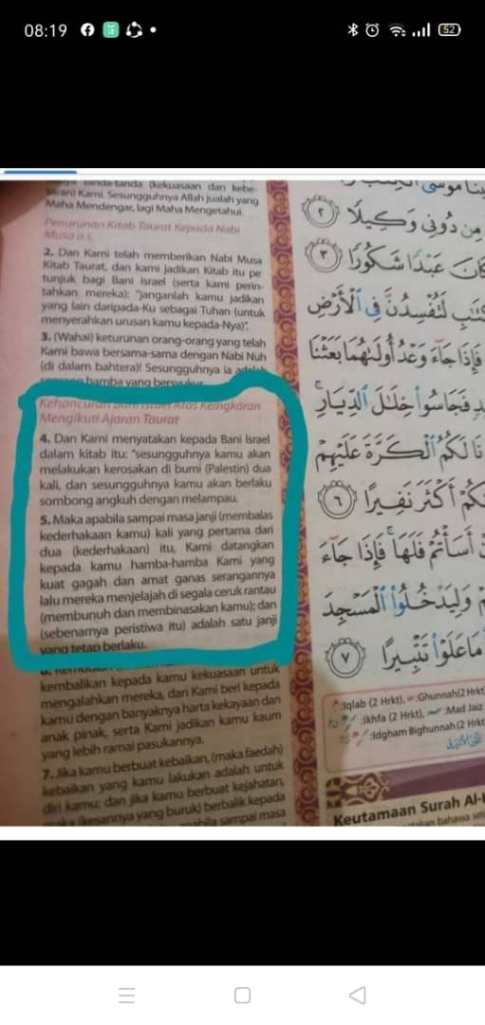 08:19
52
tanda-tanda (kekuasaan dan kebe-
saran) Kami. Sesungguhnya Allah jualah yang
Maha Mendengar, lagi Maha Mengetahui.
Penurunan Kitab Taurat Kepada Nabi
Musa a.s.
2. Dan Kami telah memberikan Nabi Musa
Kitab Taurat, dan kami jadikan Kitab itu pe-
tunjuk bagi Bani Israel (serta kami perin-
tahkan mereka): "janganlah kamu jadikan
yang lain daripada-Ku sebagai Tuhan (untuk
menyerahkan urusan kamu kepada-Nya)".
3. (Wahai) keturunan orang-orang yang telah
Kami bawa bersama-sama dengan Nabi Nuh
(di dalam bahtera)! Sesungguhnya ia adalah
hamba yang bersyukur
Kehancuran Bani Israel Atas Keingkaran
Mengikuti Ajaran Taurat
4. Dan Kami menyatakan kepada Bani Israel
dalam kitab itu: "sesungguhnya kamu akan
melakukan kerosakan di bumi (Palestin) dua
kali, dan sesungguhnya kamu akan berlaku
sombong angkuh dengan melampau.
5. Maka apabila sampai masa janji (membalas
kederhakaan kamu) kali yang pertama dari
dua (kederhakaan) itu, Kami datangkan
kepada kamu hamba-hamba Kami yang
kuat gagah dan amat ganas serangannya
lalu mereka menjelajah di segala ceruk rantau
(membunuh dan membinasakan kamu); dan
(sebenarnya peristiwa itu) adalah satu janji
yang tetap berlaku.
6. Kemudian
kembalikan kepada kamu kekuasaan untuk
mengalahkan mereka, dan Kami beri kepada
kamu dengan banyaknya harta kekayaan dan
anak pinak, serta Kami jadikan kamu kaum
yang lebih ramai pasukannya.
7. Jika kamu berbuat kebaikan, (maka faedah)
kebaikan yang kamu lakukan adalah untuk
diri kamu; dan jika kamu berbuat kejahatan,
maka (kesannya yang buruk) berbalik kepada
apabila sampai masa
مِن دُونِى وَكِيلًا ٢
كَانَ عَبْدًا شَكُورًا ٣
لَتُفْسِدُنَّ فِى ٱلْأَرْضِ
فَإِذَا جَآءَ وَعْدُ أُولَىٰهُمَا بَعَثْنَا
فَجَاسُوا۟ خِلَـٰلَ ٱلدِّيَارِ
لَكُمُ ٱلْكَرَّةَ عَلَيْهِمْ
أَكْثَرَ نَفِيرًا ٦
أَسَأْتُمْ فَلَهَا فَإِذَا جَآءَ
وَلِيَدْخُلُوا۟ ٱلْمَسْجِدَ
مَا عَلَوْا۟ تَتْبِيرًا ٧
:Iqlab (2 Hrkt), :Ghunnah(2 Hrkt
:Ikhfa (2 Hrkt), :Mad Jaiz
:Idgham Bighunnah(2 Hrkt
Keutamaan Surah Al-